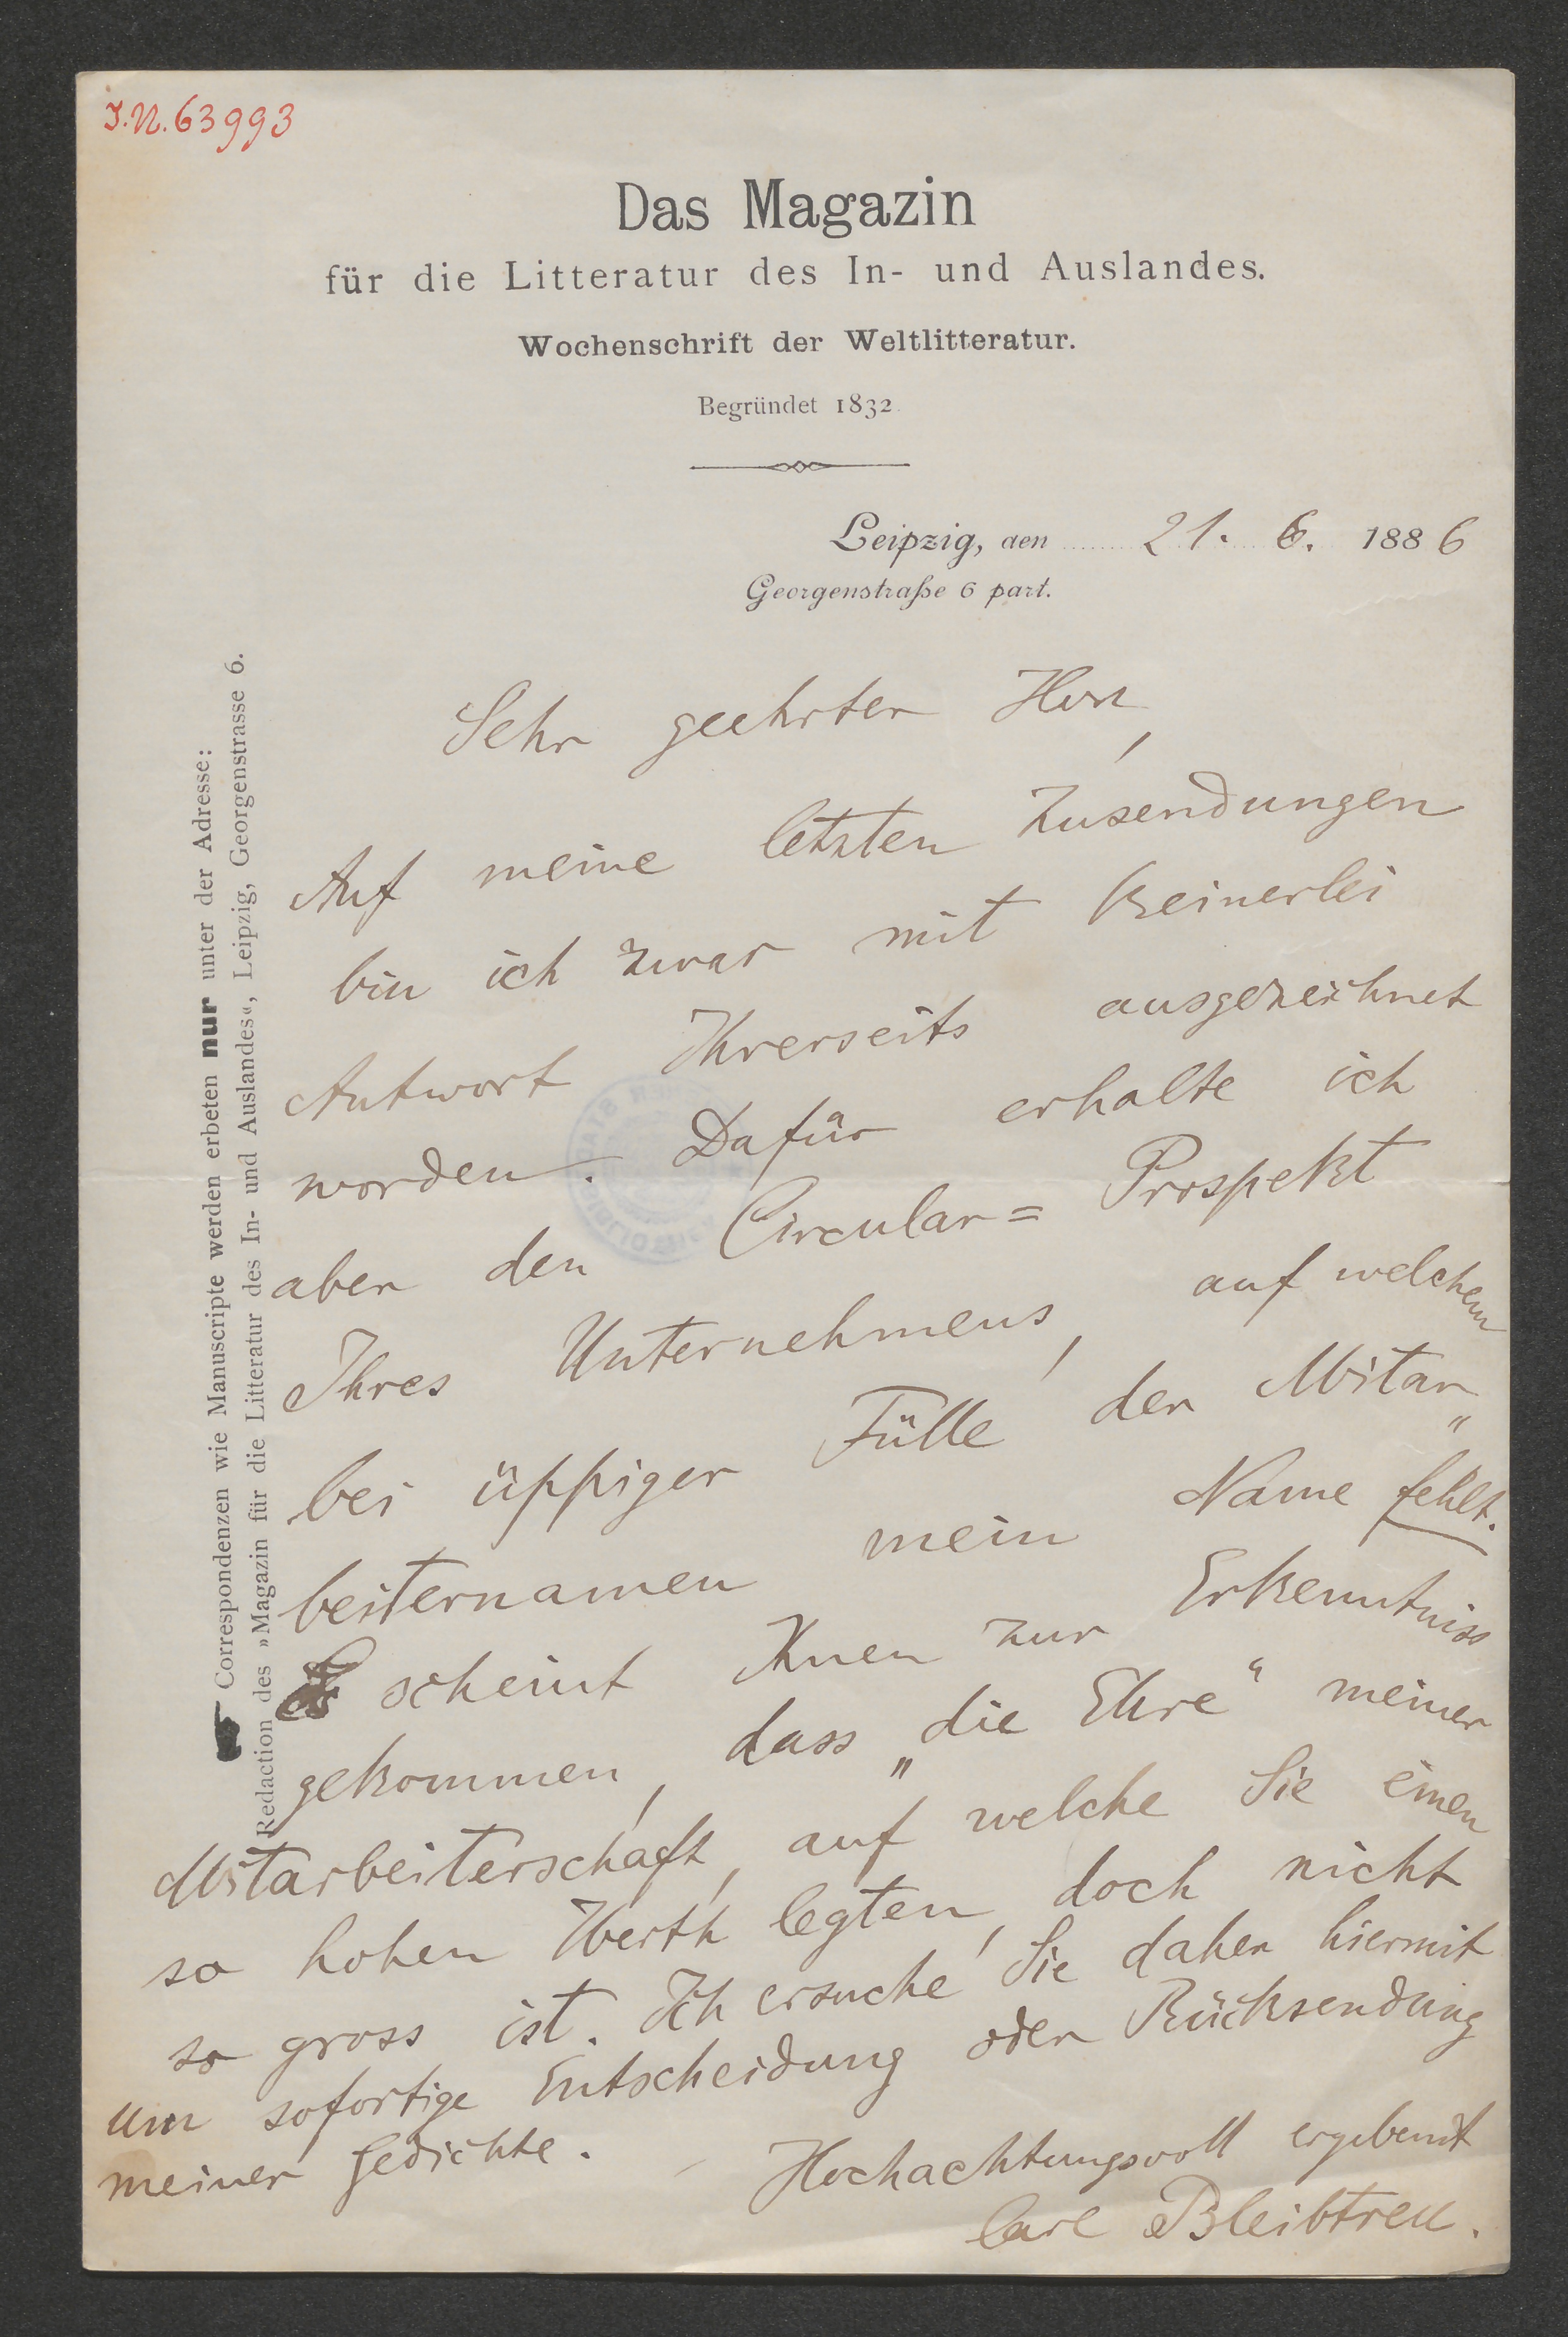 J.N. 63993
Das Magazin
für die Litteratur des In- und Auslandes.
Wochenschrift der Weltlitteratur.
Begründet 1832
Leipzig, den 21. 6. 1886
Georgenstraße 6 part.
☛ Correspondenzen wie Manuscripte werden erbeten nur unter der Adresse:
Redaction des »Magazin für die Litteratur des In- und Auslandes«, Leipzig, Georgenstrasse 6.
Sehr geehrter Herr,
Auf meine letzten Zusendungen
bin ich zwar mit keinerlei
Antwort Ihrerseits ausgezeichnet
worden. Dafür erhalte ich
aber den Circular= Prospekt
Ihres Unternehmens, auf welchem
bei üppiger Fülle der Mitar„
beiternamen mein Name fehlt.
Es scheint Ihnen zur Erkenntniss
gekommen, dass „die Ehre“ meiner
Mitarbeiterschaft, auf welche Sie einen
so hohen Werth legten, doch nicht
so gross ist. Ich ersuche Sie daher hiermit
um sofortige Entscheidung oder Rücksendung
meiner Gedichte. – Hochachtungsvoll ergebenst
Carl Bleibtreu.